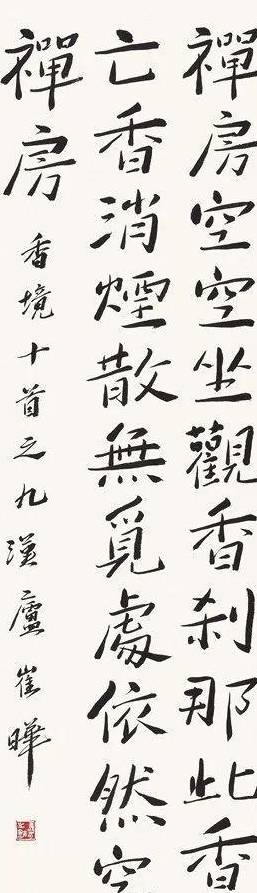 禪房空空坐觀香刹那此香
亡香消煙散無覓處依然空
禪房
香境十首之九漢廬崔曄